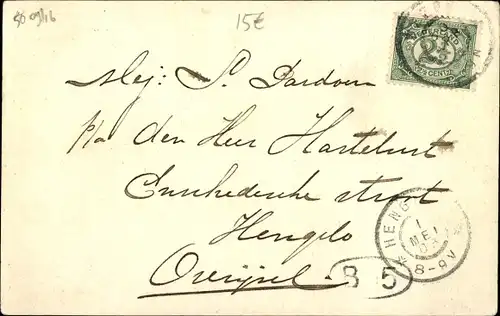 50 09/16
15€
NEDERLAND
2½
CENT
Mej: S. Dardoen
p/a den Heer Hartelust
Enschedesche straat
Hengelo
Overijsel
B 5
HENG
1
MEI
8-9V